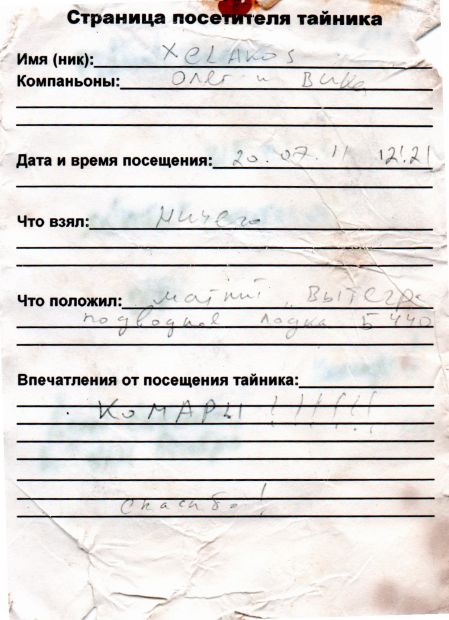 Страница посетителя тайника
Имя (ник): XELAVOS
Компаньоны: Олег и Вика
Дата и время посещения: 20.07.11 12:21
Что взял: Ничего
Что положил: магнит „Вытегра
подводная лодка Б 440
Впечатления от посещения тайника:
КОМАРЫ !!!!!!
Спасибо!